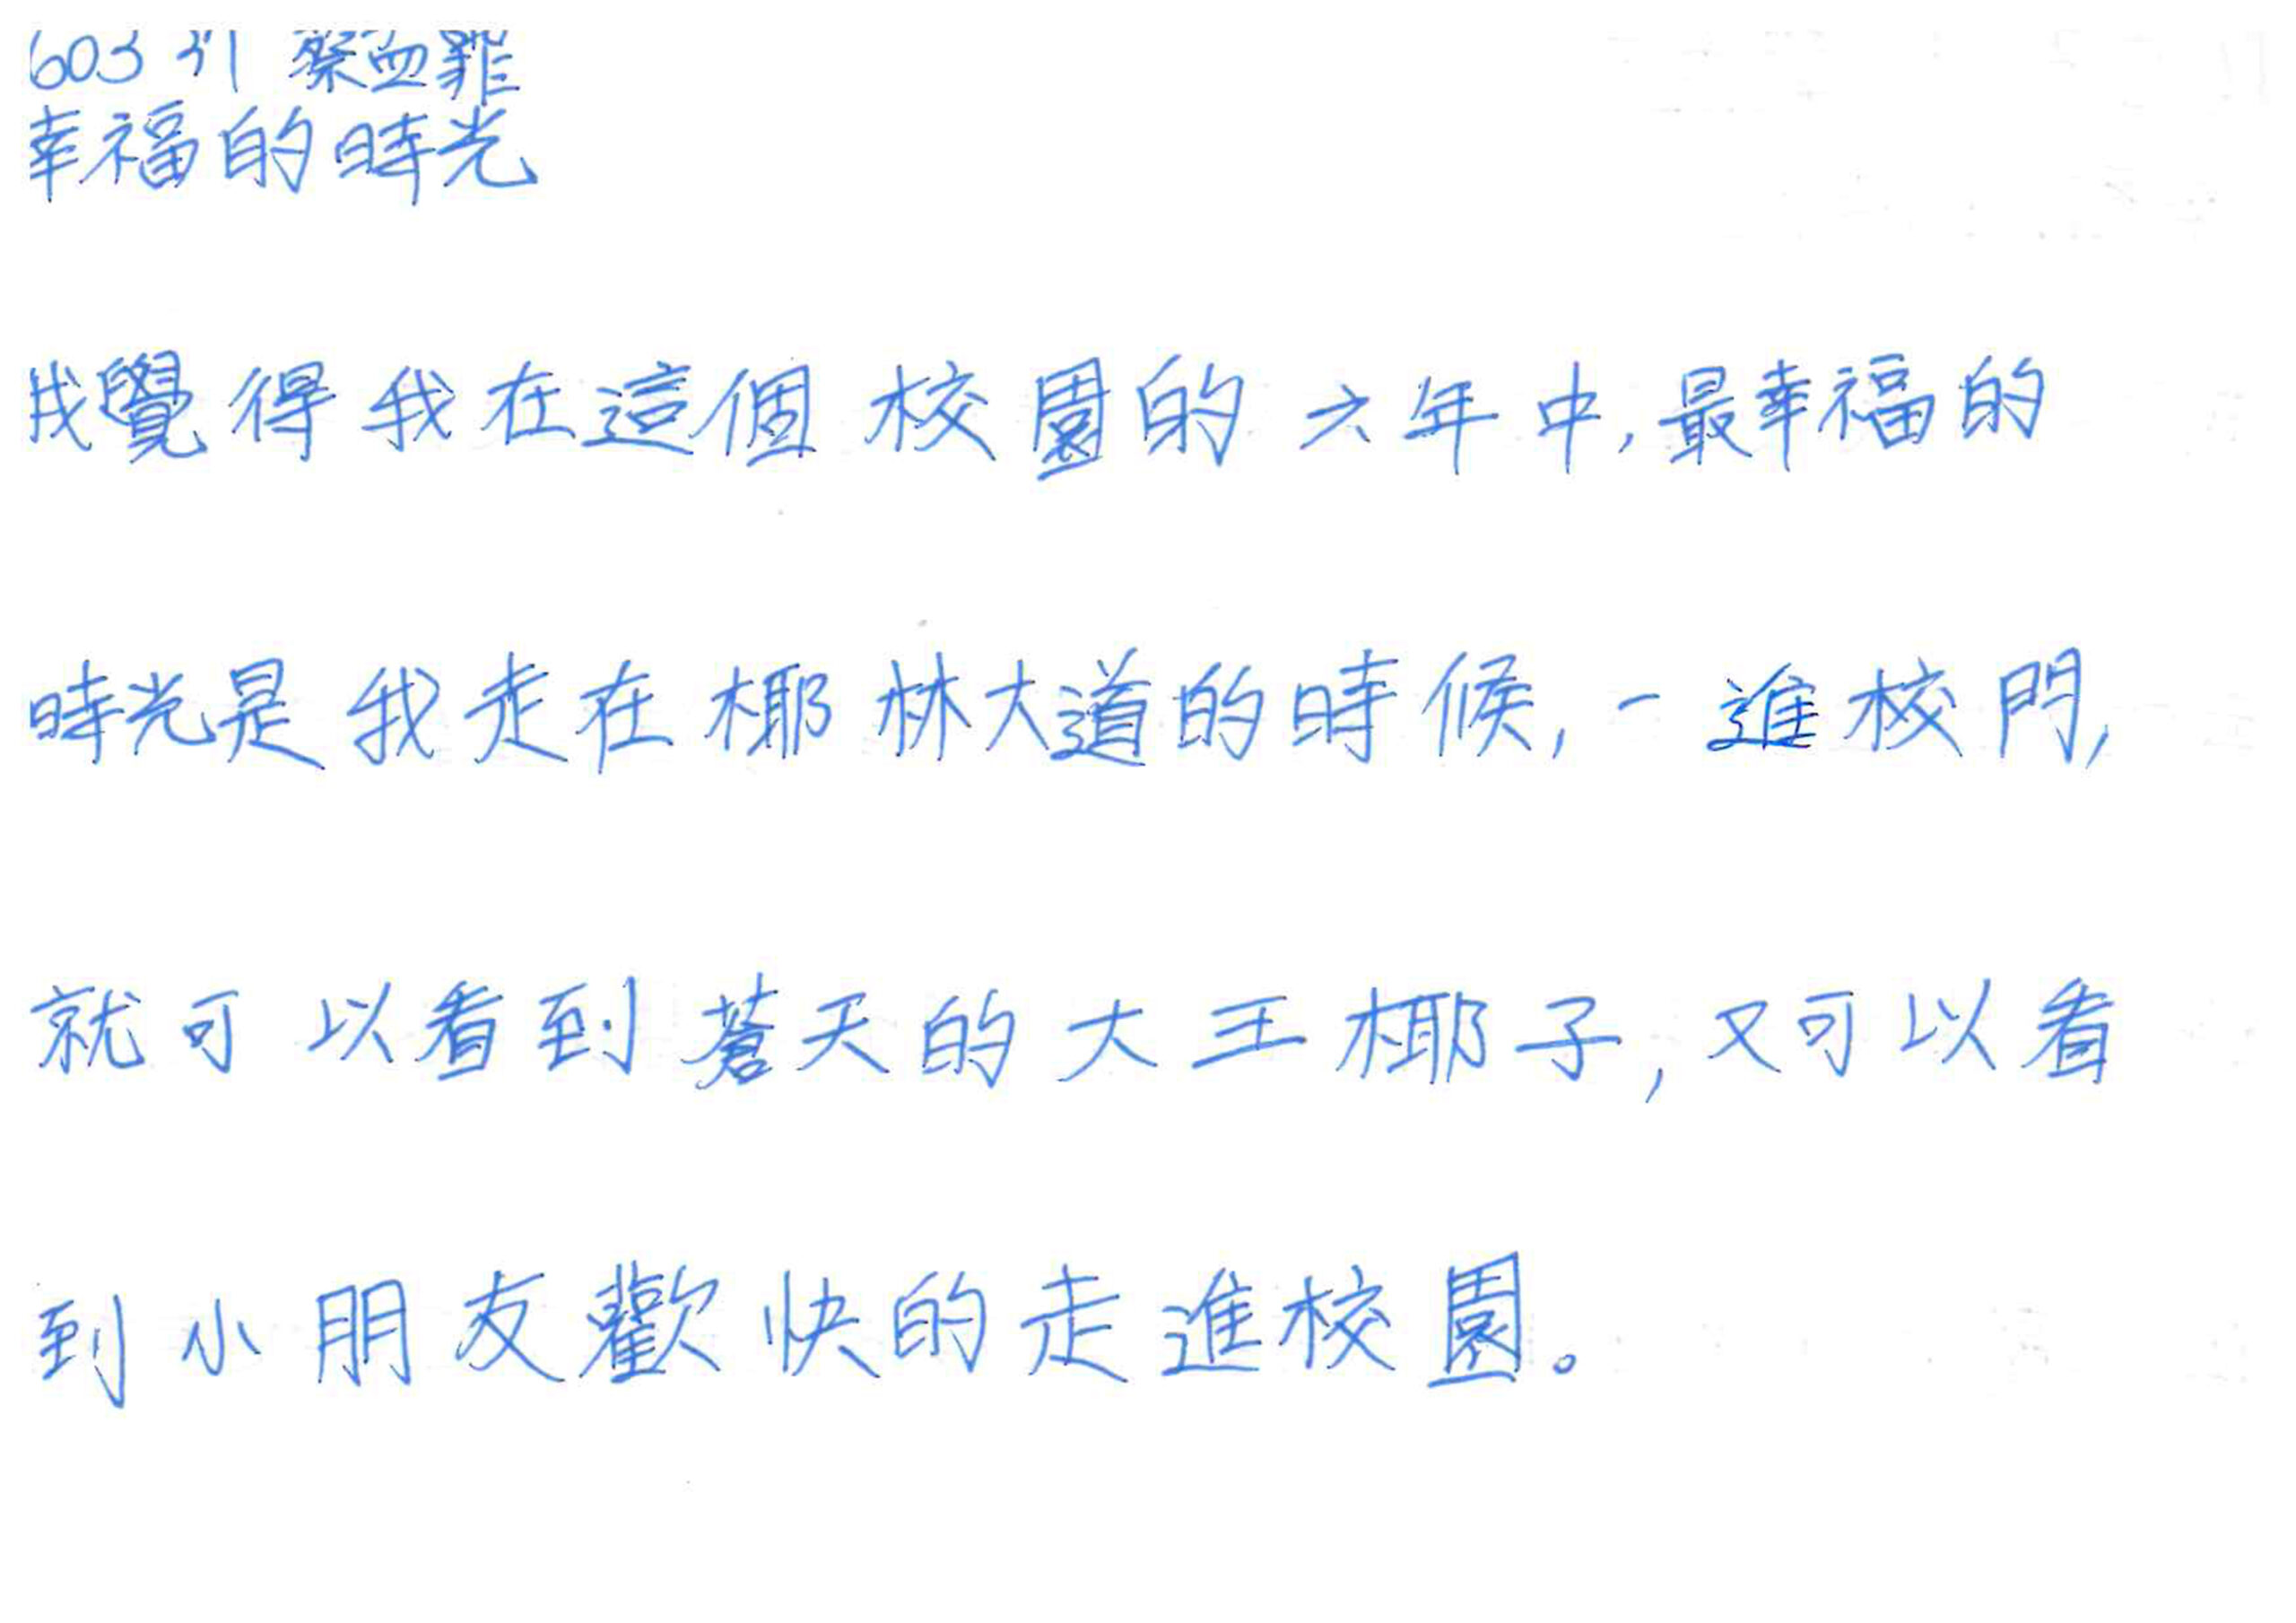 603 31 蔡
幸福的時光
我覺得我在這個校園的六年中,最幸福的
時光是我走在椰林大道的時候,一進校門,
就可以看到蒼天的大王椰子,又可以看
到小朋友歡快的走進校園。